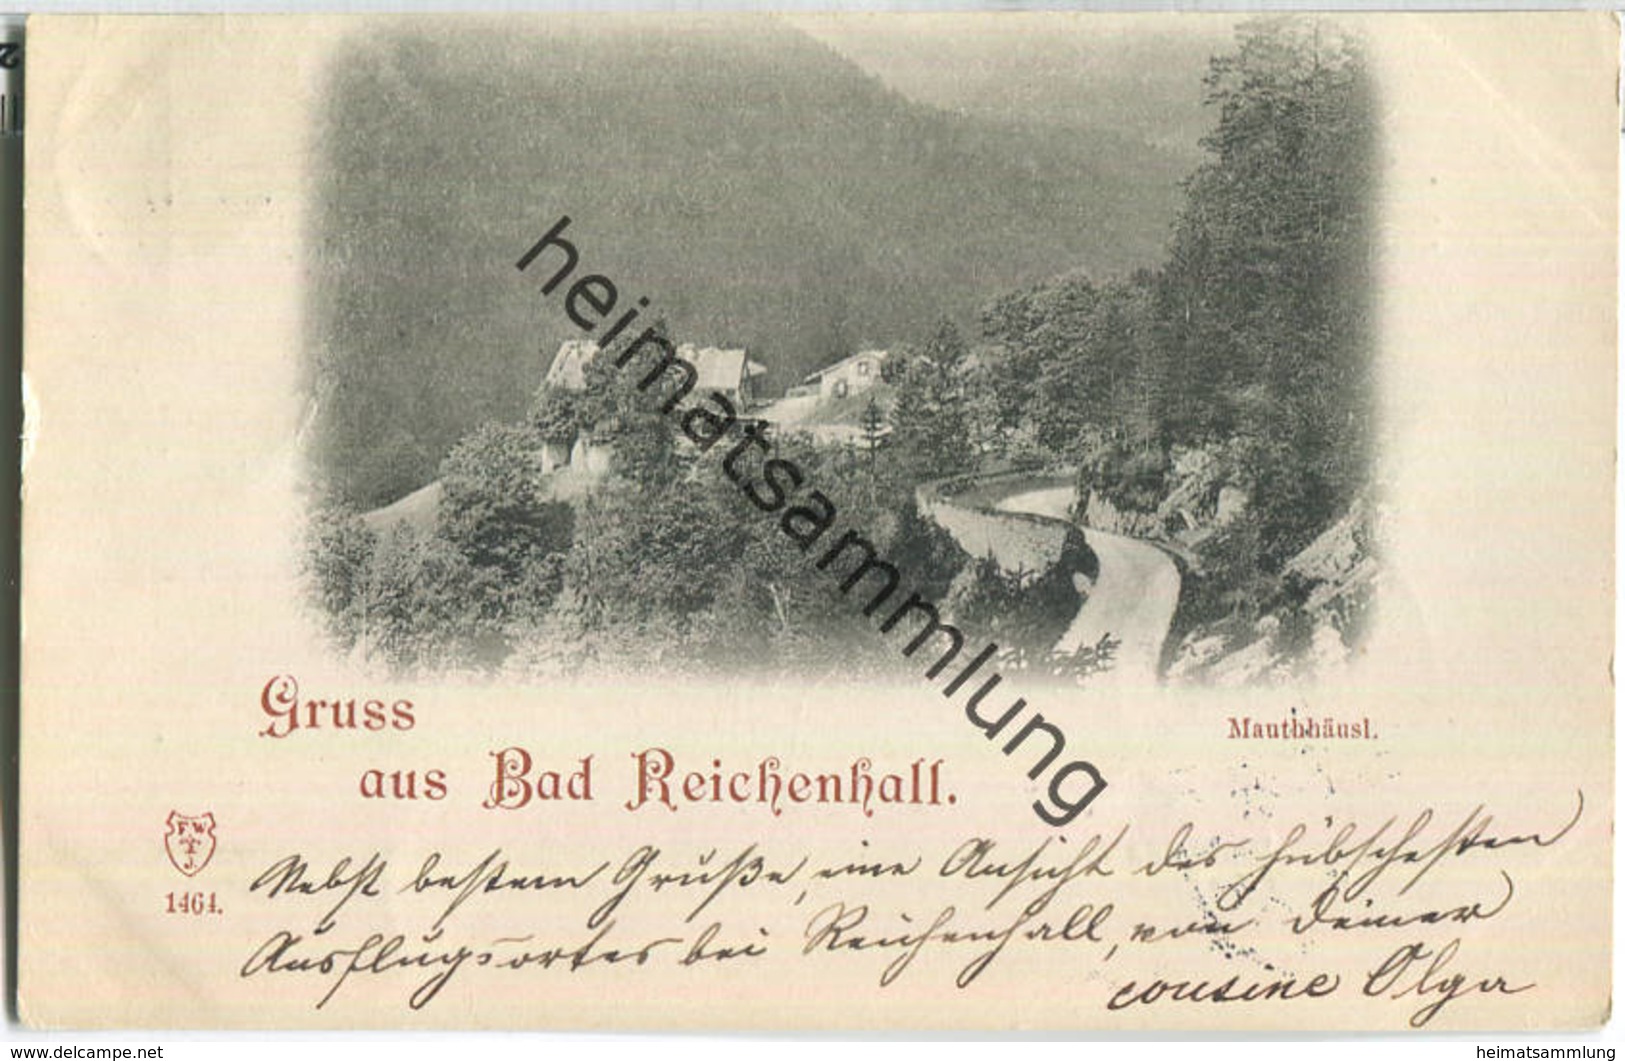 heimatsammlung
Gruss
Mauthhäusl.
aus Bad Reichenhall.
F W
T
J.
1464.
Nebst bestem Gruße, eine Ansicht des hübschesten
Ausflugsortes bei Reichenhall, von Deiner
cousine Olga
www.delcampe.net
heimatsammlung